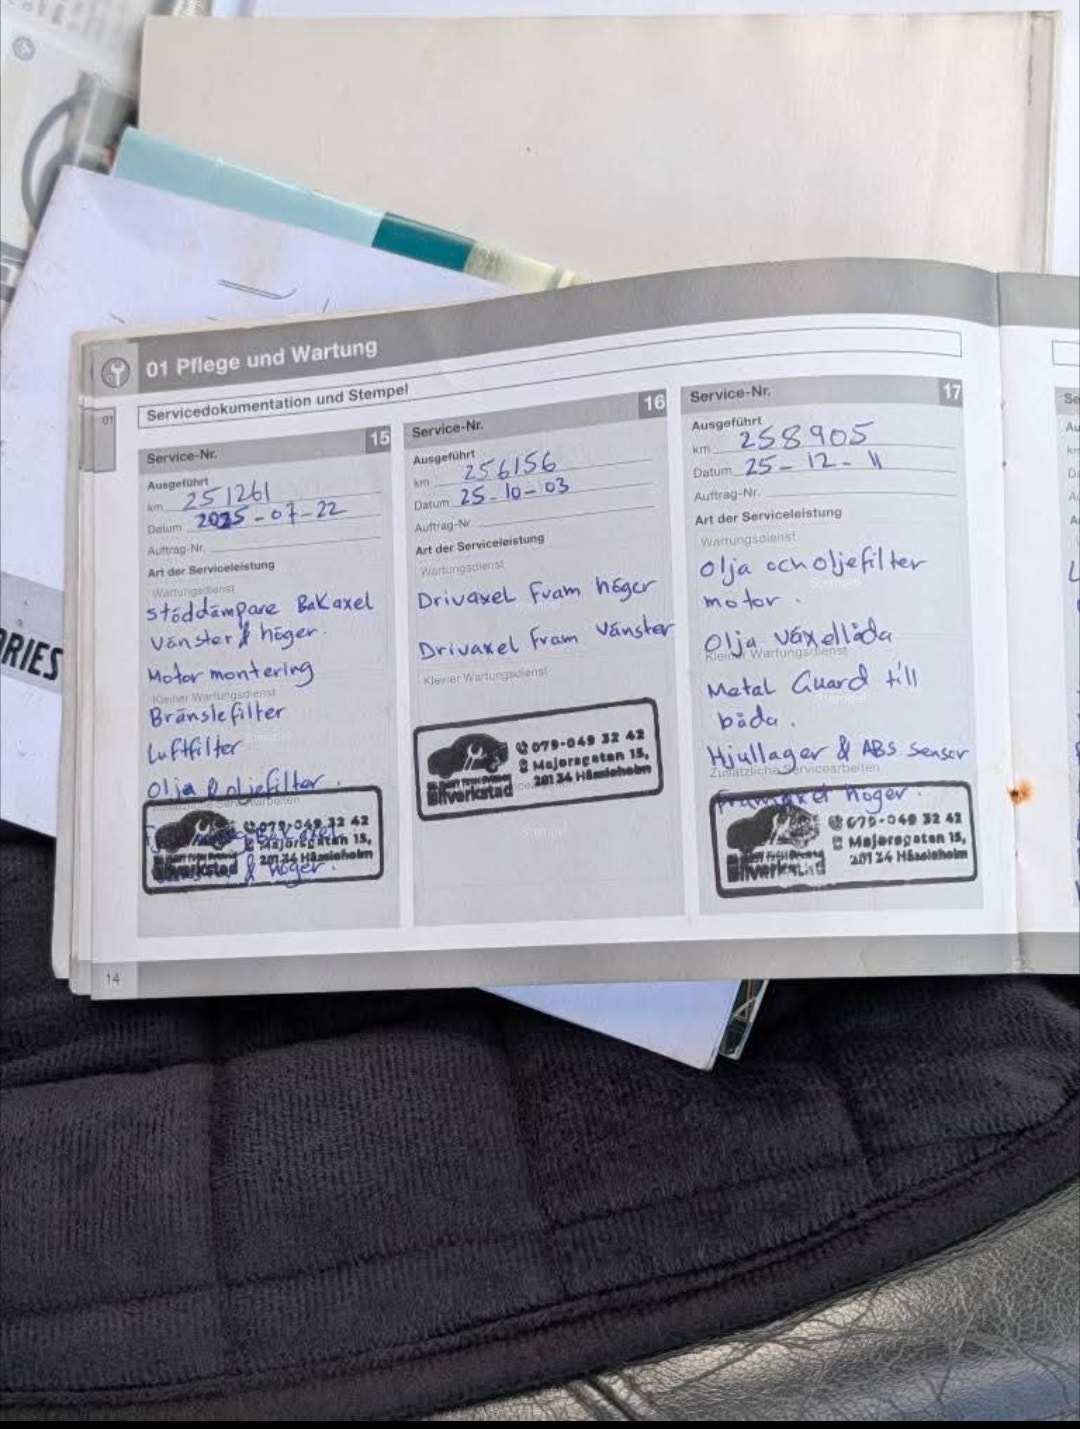 RIES
01 Pflege und Wartung
01
Servicedokumentation und Stempel
Service-Nr. 15
Ausgeführt
km 251261
Datum 2025-07-22
Auftrag-Nr.
Art der Serviceleistung
Wartungsdienst
Stöddämpare Bakaxel
Vänster & höger.
Motor montering
Kleiner Wartungsdienst
Bränslefilter
Luftfilter
Olja & oljefilter.
Bakaxel
& höger.
079-049 32 42
Majorsgatan 15,
281 34 Hässleholm
Bilverkstad
Service-Nr. 16
Ausgeführt
km 256156
Datum 25-10-03
Auftrag-Nr.
Art der Serviceleistung
Wartungsdienst
Drivaxel Fram höger
Drivaxel Fram Vänster
Kleiner Wartungsdienst
079-049 32 42
Majorsgatan 15,
281 34 Hässleholm
Bilverkstad
Stempel
Service-Nr. 17
Ausgeführt
km 258905
Datum 25-12-11
Auftrag-Nr.
Art der Serviceleistung
Wartungsdienst
Olja och oljefilter
motor.
Olja växellåda
Kleiner Wartungsdienst
Metal Guard till
båda.
Hjullager & ABS sensor
Zusätzliche Servicearbeiten
Framaxel höger.
079-049 32 42
Majorsgatan 15,
281 34 Hässleholm
Bilverkstad
14